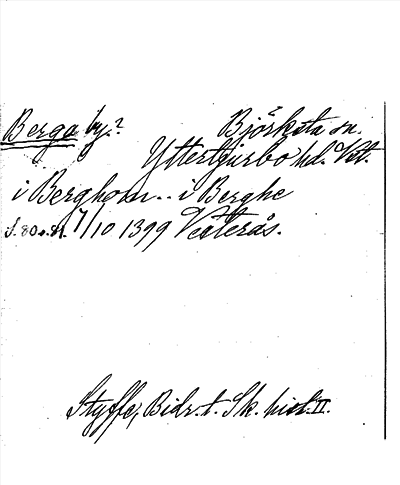 Berga by? Björksta sn.
Yttertjurbo hd. Vstm.
i Berghom .. i Berghe
s. 80 o. 81. 7/10 1399 Västerås.
Styffe, Bidr. t. Sk. hist. II.